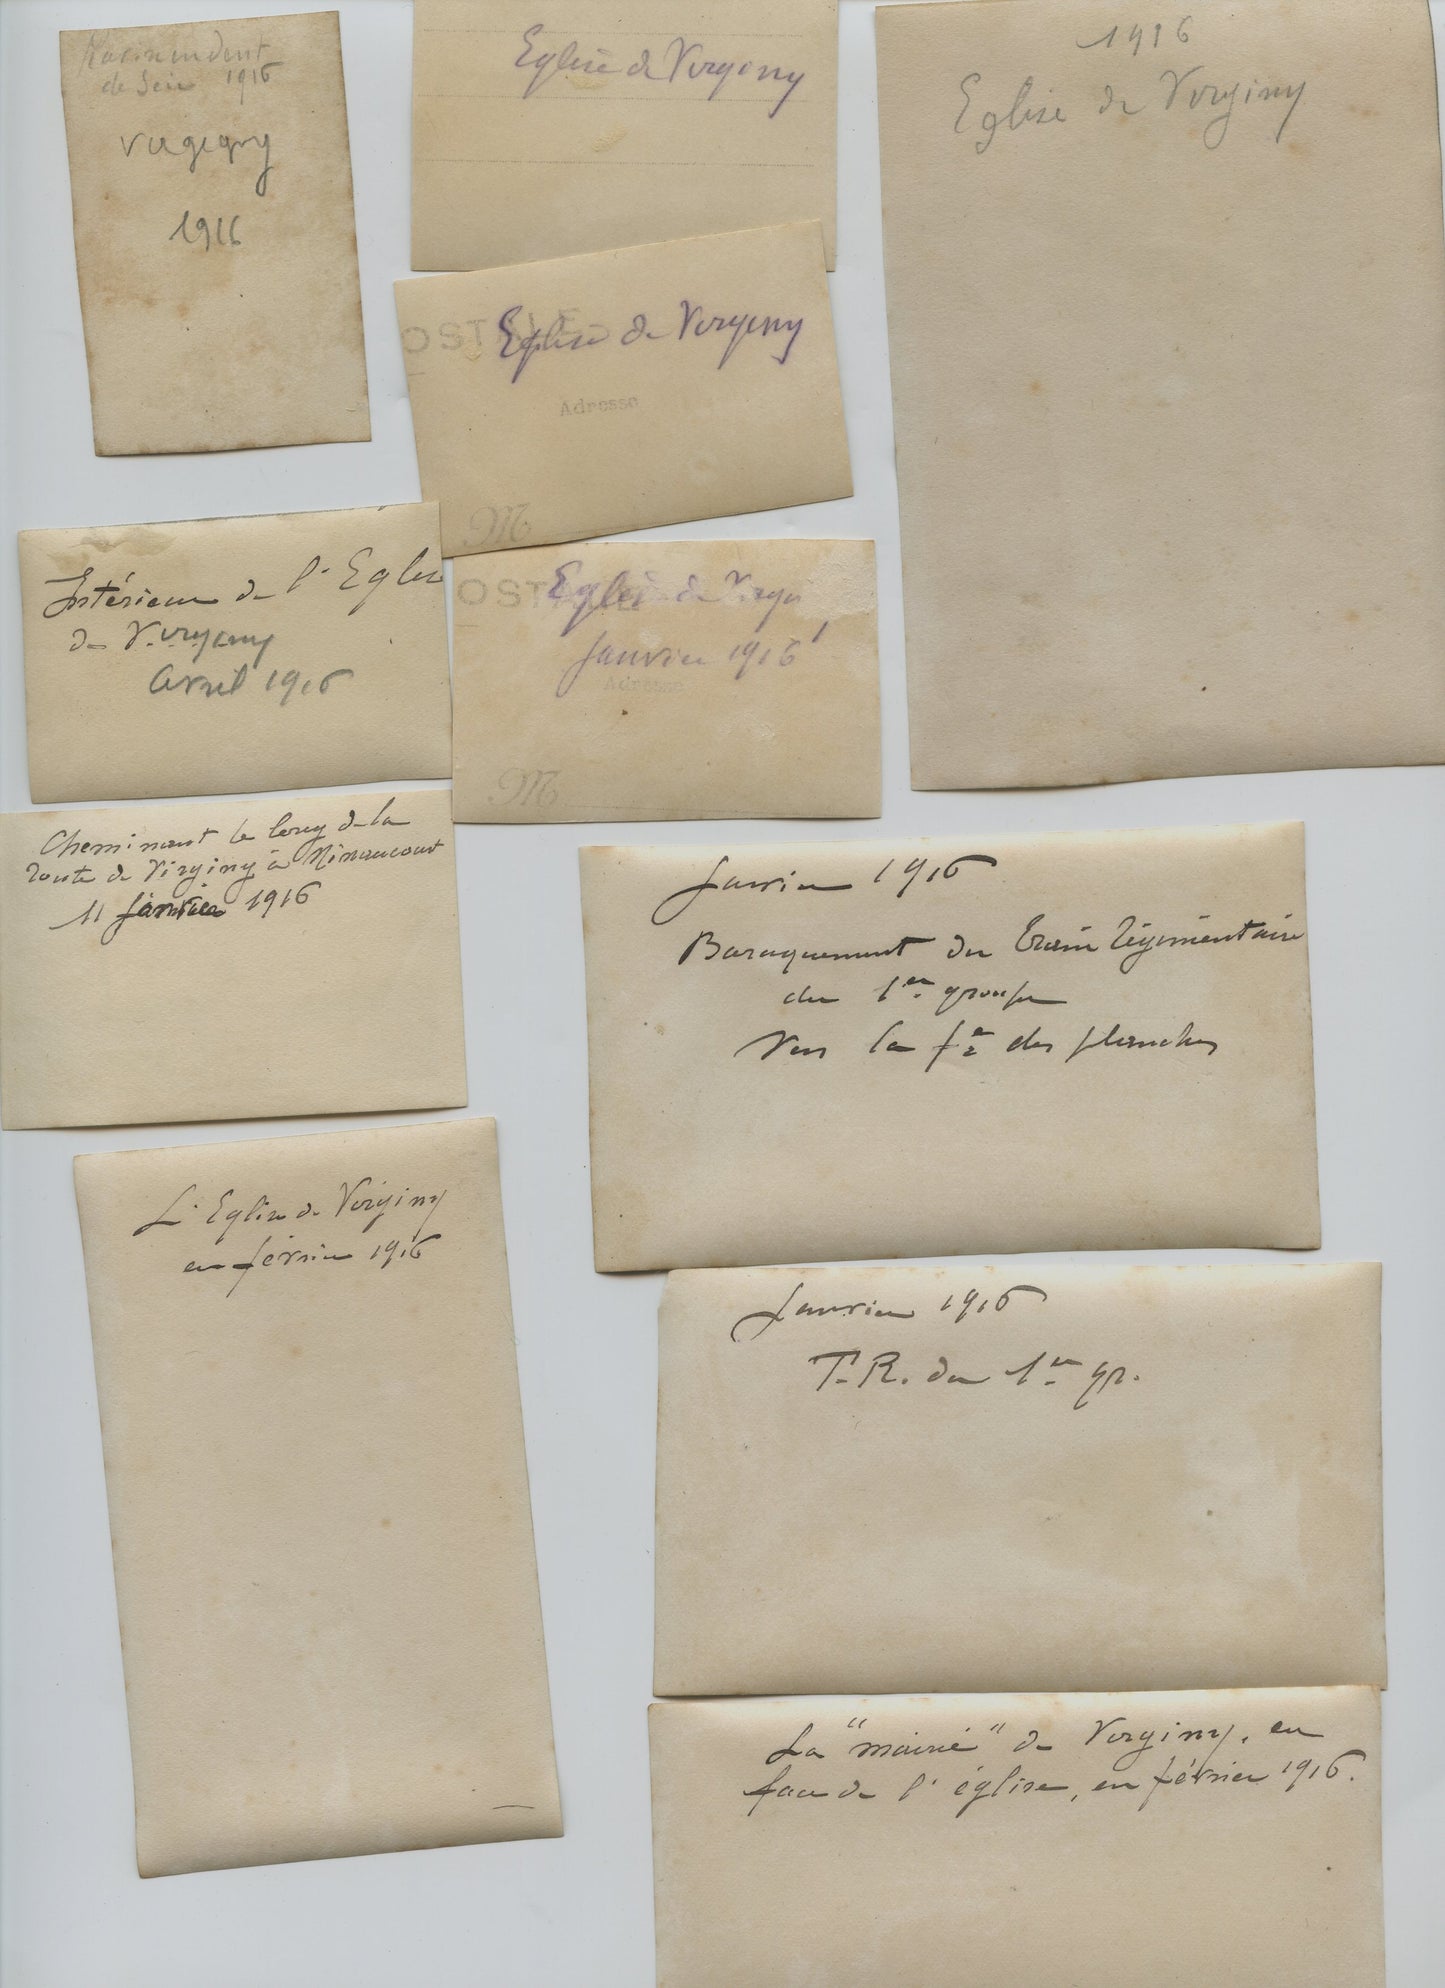 1916
Vergigny
1916
Eglise de Vergeny
1916
Eglise de Virginy
OSTALE
Eglise de Vergeny
Adresse
M
Intérieur de l'Eglise
de Vergeny
Avril 1916
OSTALE
Eglise de
Janvier 1916
Adresse
M
Cheminant le long de la
route de Virginy à Minaucourt
11 janvier 1916
Janvier 1916
Baraquement du Train régimentaire
du 1er groupe
Vers la fe des planches
L'Eglise de Virginy
en février 1916
Janvier 1916
T.R. du 1er gr.
La "mairie" de Virginy, en
face de l'église, en février 1916.